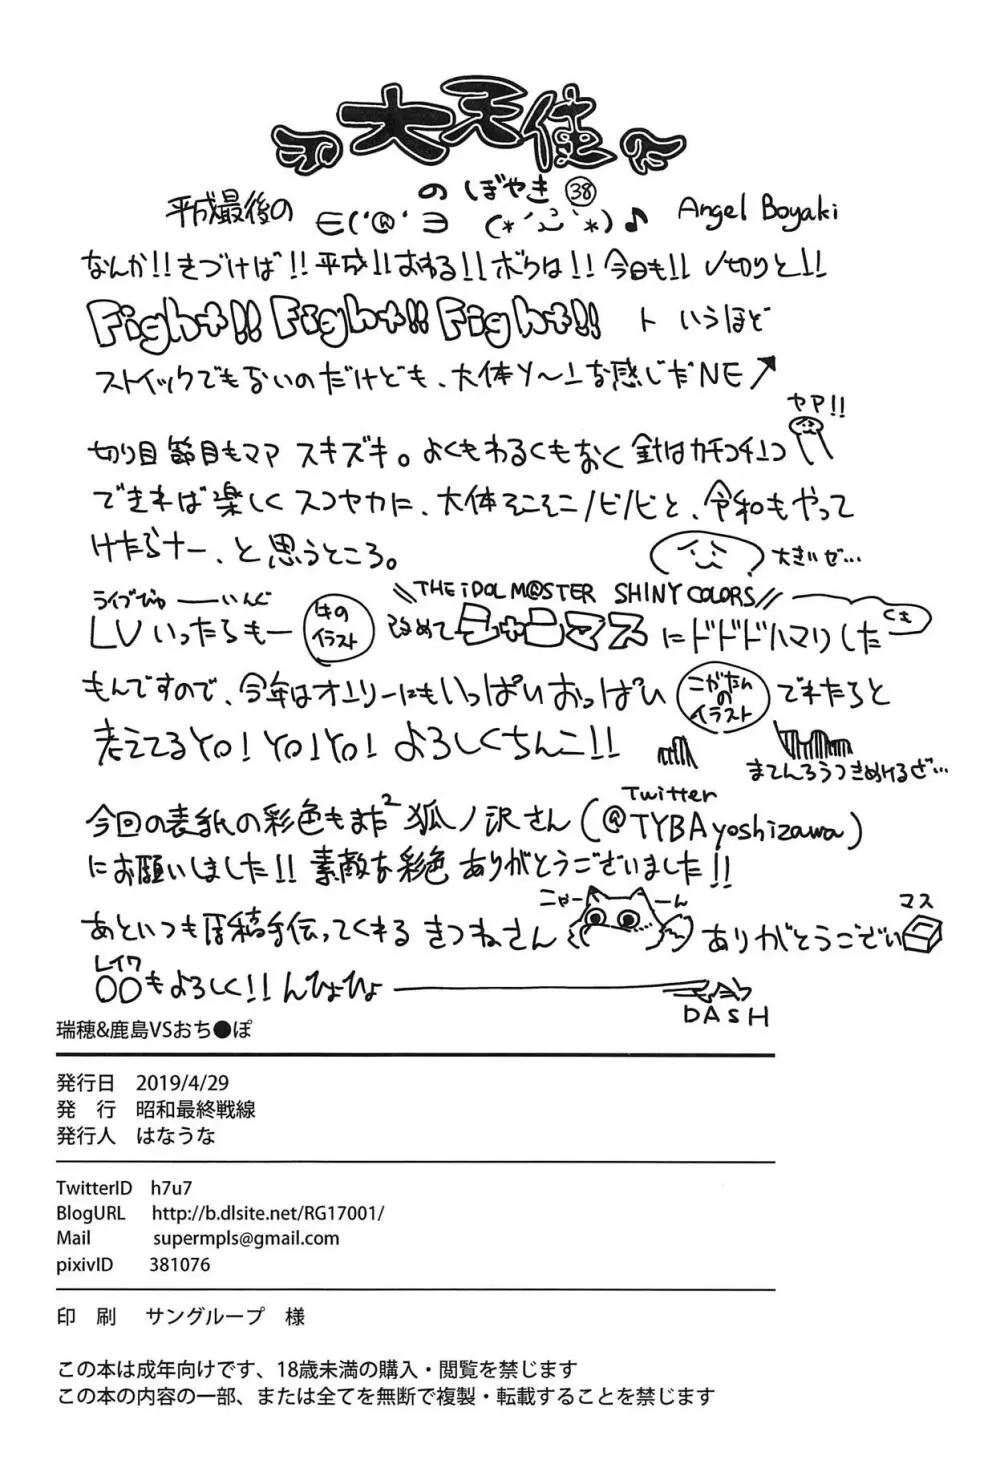 大天使
のぼやき㊳
平成最後の
∈('@'∋
Angel Boyaki
なんか!!きづけば!!平成!!おわる!!ボクは!!今日も!!〆切りと!!
Fight!! Fight!! Fight!! ト いうほど
ストイックでもないのだけども、大体ソ〜ユな感じだNE↗
ヤア!!
切り目節目もママ スキズキ。よくもわるくもなく 針はカチコチュコ
できれば楽しくスコヤカに、大体そこそこノビノビと、令和もやって
けたらナー、と思うところ。
大きいぜ…
ライブびゅーいんぐ
\\THE iDOLM@STER SHINY COLORS//
LVいったらもー
牛の
イラスト
改めてシャニマスにドドドハマりした
くも
もんですので、今年はオンリーにもいっぱいおっぱい
こがたん
の
イラスト
でれたらと
考えてるYO!YO!YO!よろしくちんこ!!
まてんろうつきぬけるぜ…
今回の表紙の彩色もまた2 狐ノ沢さん(@TYBAyoshizawa)
Twitter
にお願いしました!!素敵な彩色ありがとうございました!!
あといつも原稿手伝ってくれるきつねさん
こゃーーん
ありがとうござい
マス
レイワ
○○もよろしく!!んひょひょ
DASH
瑞穂&鹿島VSおち●ぽ
発行日 2019/4/29
発 行 昭和最終戦線
発行人 はなうな
TwitterID h7u7
BlogURL http://b.dlsite.net/RG17001/
Mail supermpls@gmail.com
pixivID 381076
印 刷 サングループ 様
この本は成年向けです、18歳未満の購入・閲覧を禁じます
この本の内容の一部、または全てを無断で複製・転載することを禁じます